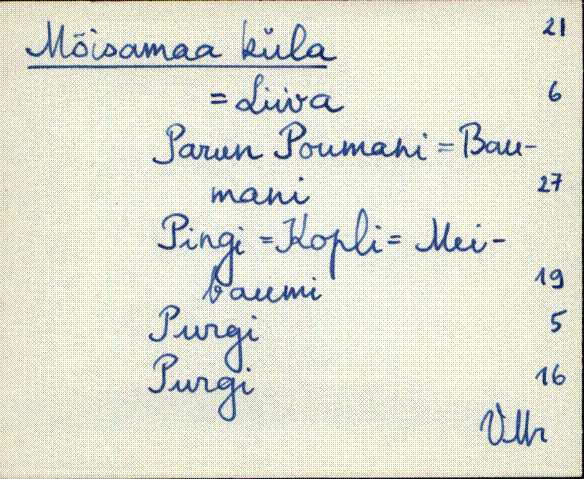 Mõisamaa küla 21
= Liiva 6
Parun Poumani = Bau-
mani 27
Pingi = Kopli = Mei-
baumi 19
Purgi 5
Purgi 16
VMr